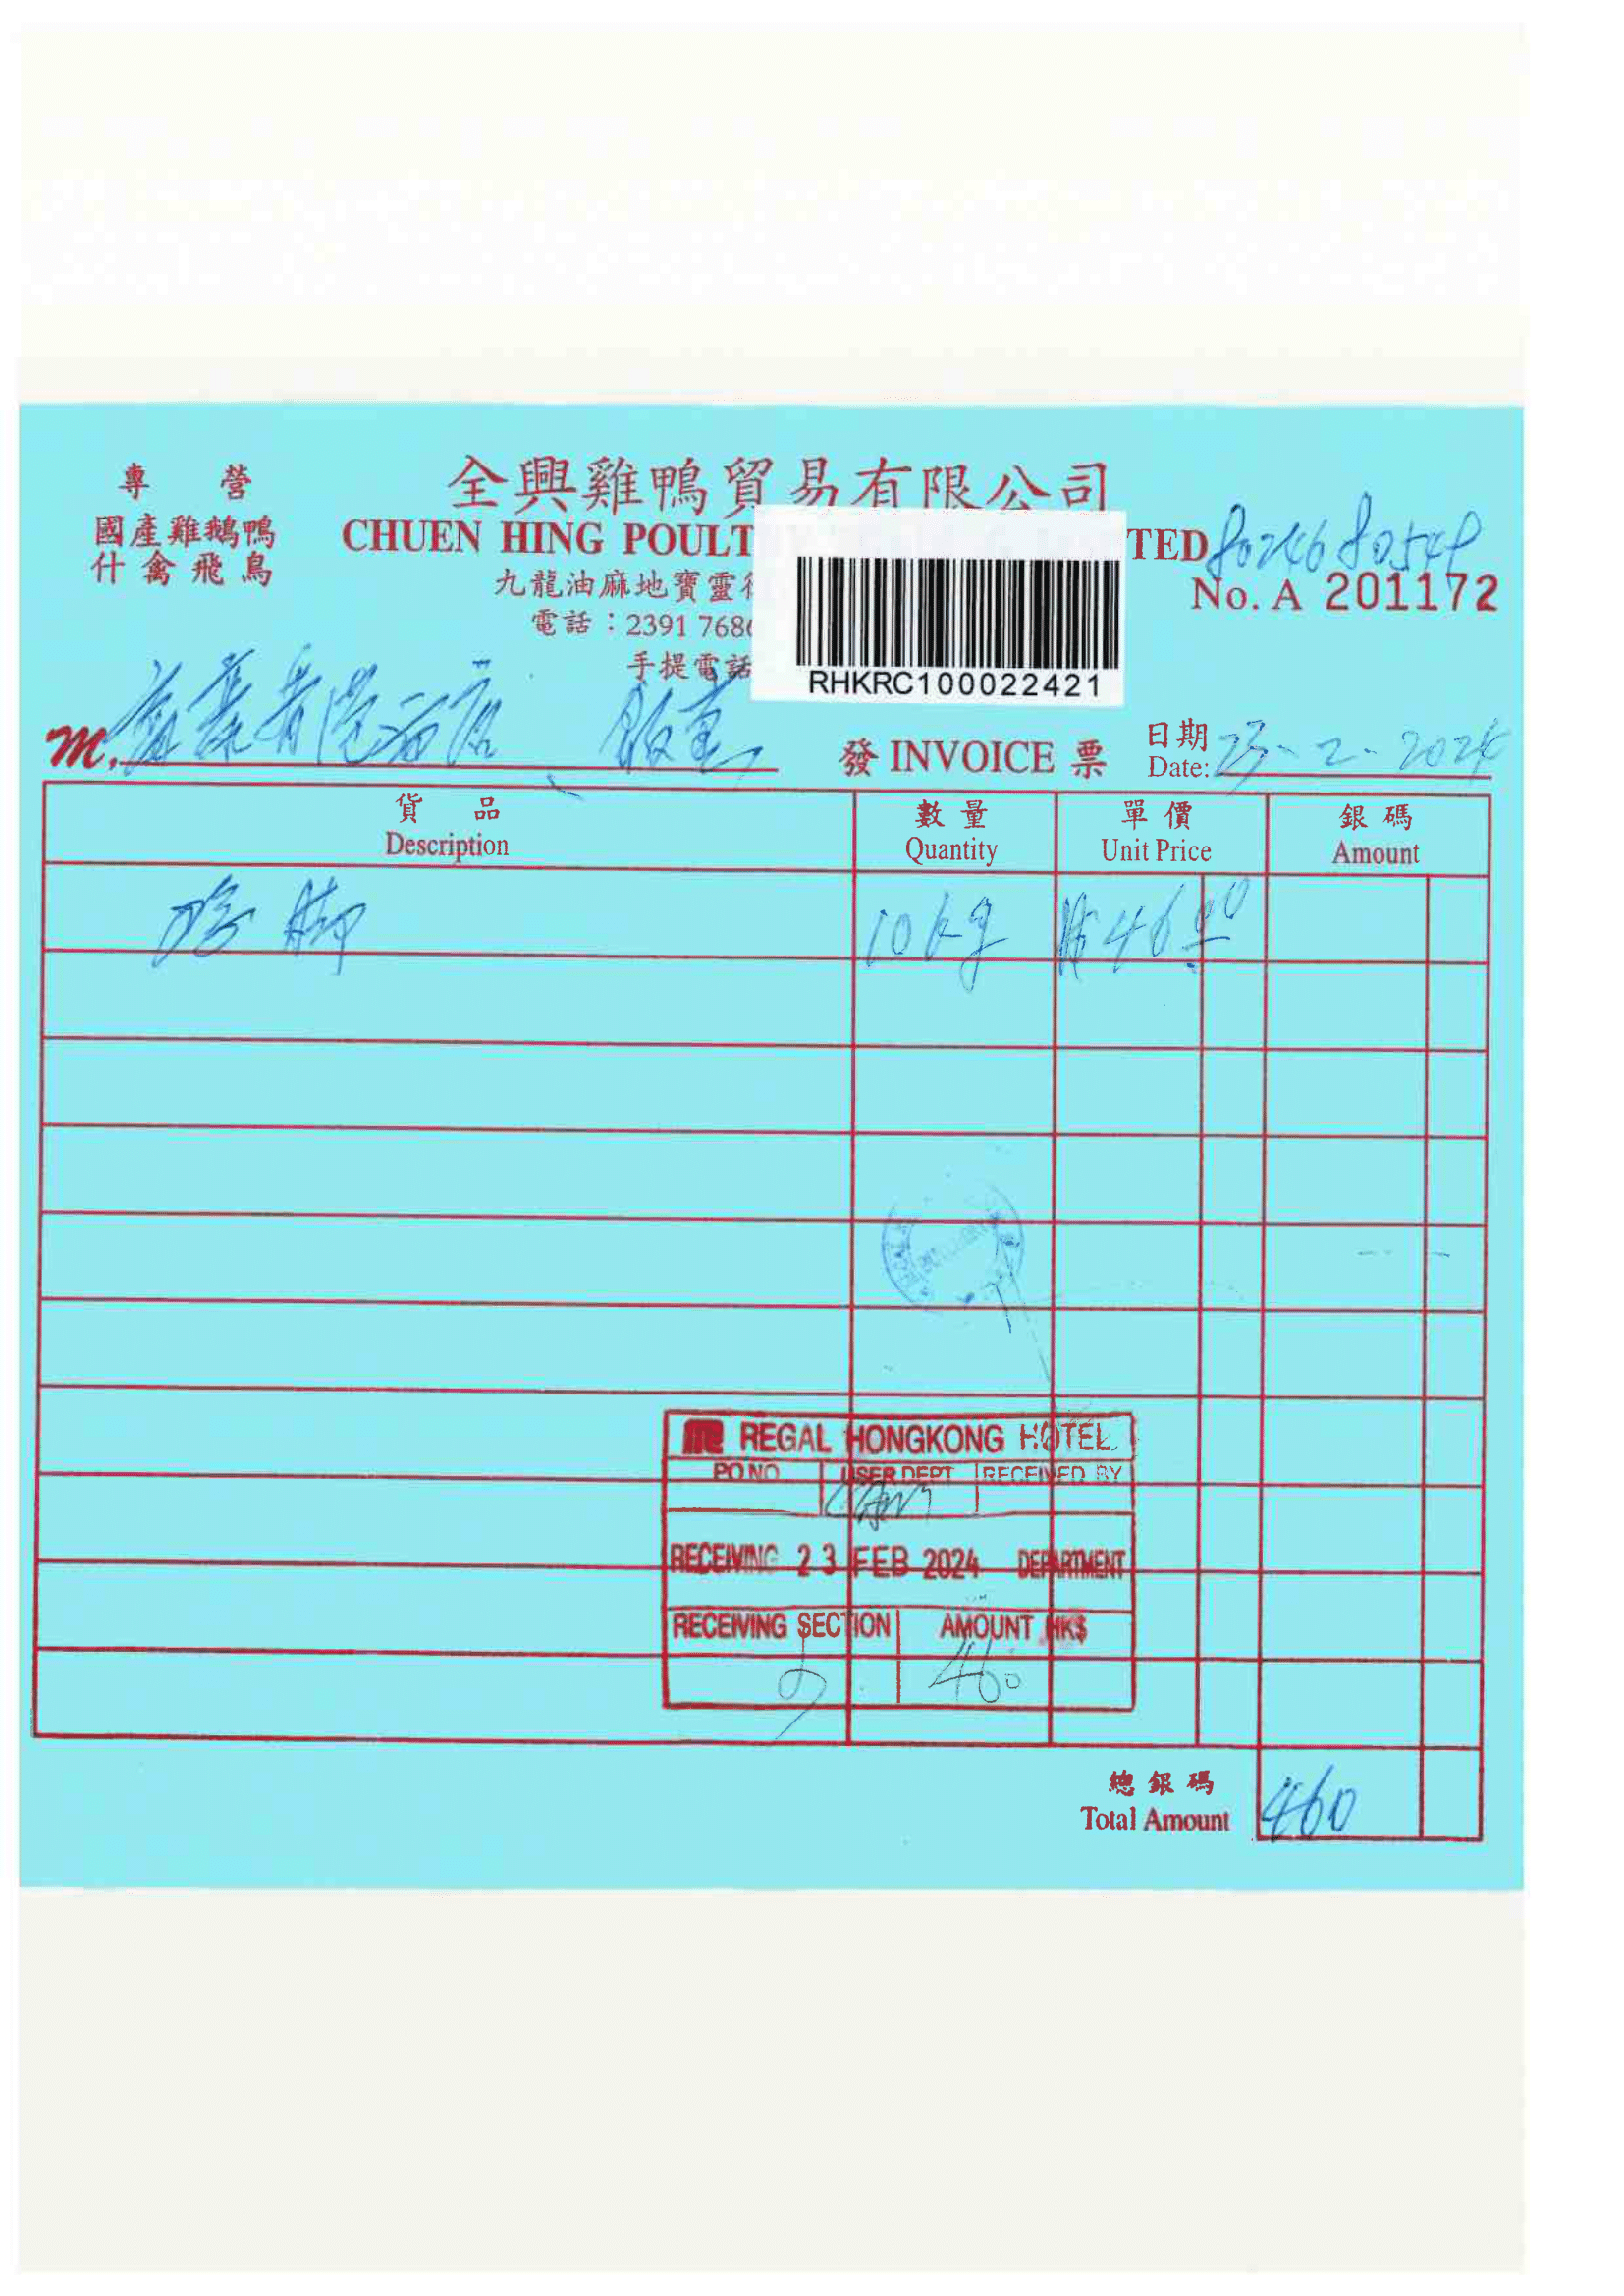 專 營
國產雞鵝鴨
什禽飛鳥
全興雞鴨貿易有限公司
CHUEN HING POULT TED
九龍油麻地寶靈
電話：2391 768
手提電話
RHKRC100022421
No. A 201172
M. 富豪香港酒店
發 INVOICE 票
日期
Date: 23-2-2024
貨 品
Description
數量
Quantity
單價
Unit Price
銀碼
Amount
10 kg 46.00
REGAL HONGKONG HOTEL
PO NO USER DEPT RECEIVED BY
RECEIVING 23 FEB 2024 DEPARTMENT
RECEIVING SECTION AMOUNT HK$
460
總銀碼
Total Amount 460